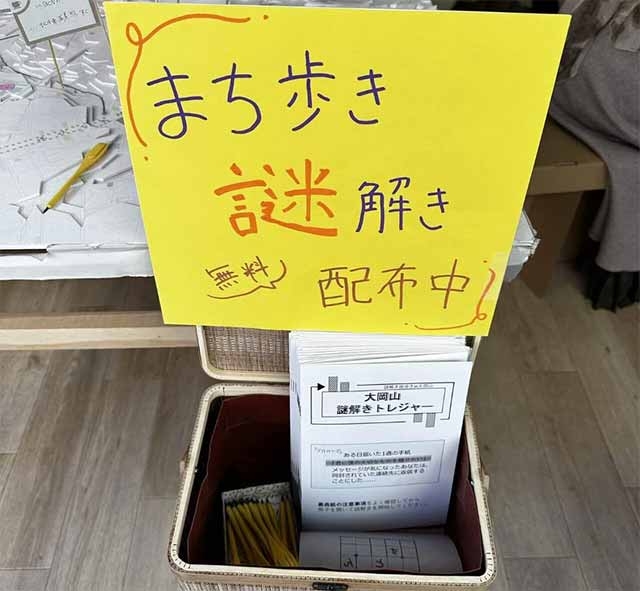 まち歩き
謎解き
無料
配布中
大岡山
謎解きトレジャー
ある日届いた1通の手紙
メッセージが気になったあなたは、
同封されていた連絡先に返信する
ことにした……